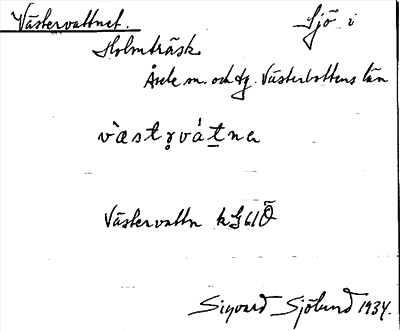 Västervattnet. Sjö i
Holmträsk
Åsele m. och tg. Västerbottens län
vàstr̥váṯna
Västervattn kG61Ö
Sigvard Sjölund 1934.